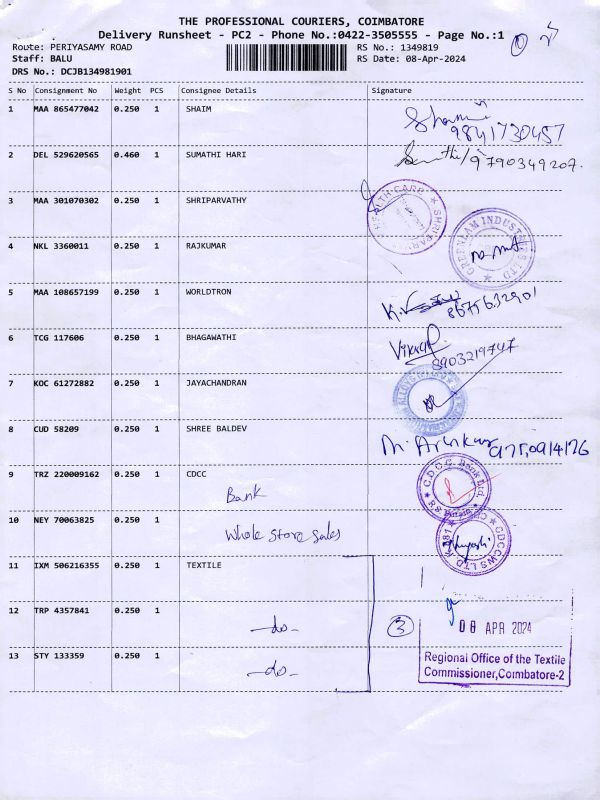 THE PROFESSIONAL COURIERS, COIMBATORE
Delivery Runsheet - PC2 - Phone No.:0422-3505555 - Page No.:1
Route: PERIYASAMY ROAD
RS No.: 1349819
Staff: BALU
RS Date: 08-Apr-2024
DRS No.: DCJB134981901
S No Consignment No Weight PCS Consignee Details Signature
1 MAA 865477042 0.250 1 SHAIM
9841730457
2 DEL 529620565 0.460 1 SUMATHI HARI
9790349207.
3 MAA 301070302 0.250 1 SHRIPARVATHY
4 NKL 3360011 0.250 1 RAJKUMAR
GREENLAM INDUSTRIES LTD
5 MAA 108657199 0.250 1 WORLDTRON
8675632901
6 TCG 117606 0.250 1 BHAGAWATHI
8903219747
7 KOC 61272882 0.250 1 JAYACHANDRAN
8 CUD 58209 0.250 1 SHREE BALDEV
9 TRZ 220009162 0.250 1 CDCC
Bank
C.D.C.C. Bank Ltd.
10 NEY 70063825 0.250 1
Whole store sales
11 IXM 506216355 0.250 1 TEXTILE
12 TRP 4357841 0.250 1
-do-
3
08 APR 2024
13 STY 133359 0.250 1
-do-
Regional Office of the Textile
Commissioner,Coimbatore-2